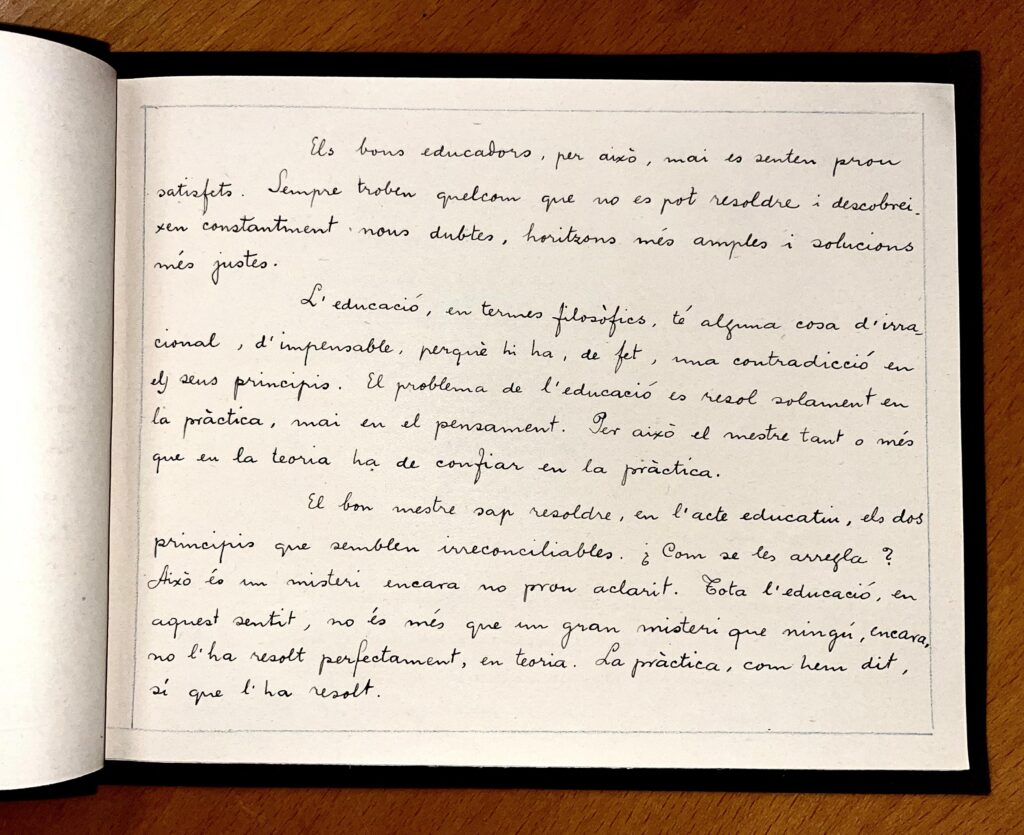 Els bons educadors, per això, mai es senten prou
satisfets. Sempre troben quelcom que no es pot resoldre i descobrei-
xen constantment nous dubtes, horitzons més amples i solucions
més justes.
L'educació, en termes filosòfics, té alguna cosa d'irra-
cional, d'impensable, perquè hi ha, de fet, una contradicció en
els seus principis. El problema de l'educació es resol solament en
la pràctica, mai en el pensament. Per això el mestre tant o més
que en la teoria ha de confiar en la pràctica.
El bon mestre sap resoldre, en l'acte educatiu, els dos
principis que semblen irreconciliables. ¿Com se les arregla?
Això és un misteri encara no prou aclarit. Tota l'educació, en
aquest sentit, no és més que un gran misteri que ningú, encara,
no l'ha resolt perfectament, en teoria. La pràctica, com hem dit,
sí que l'ha resolt.